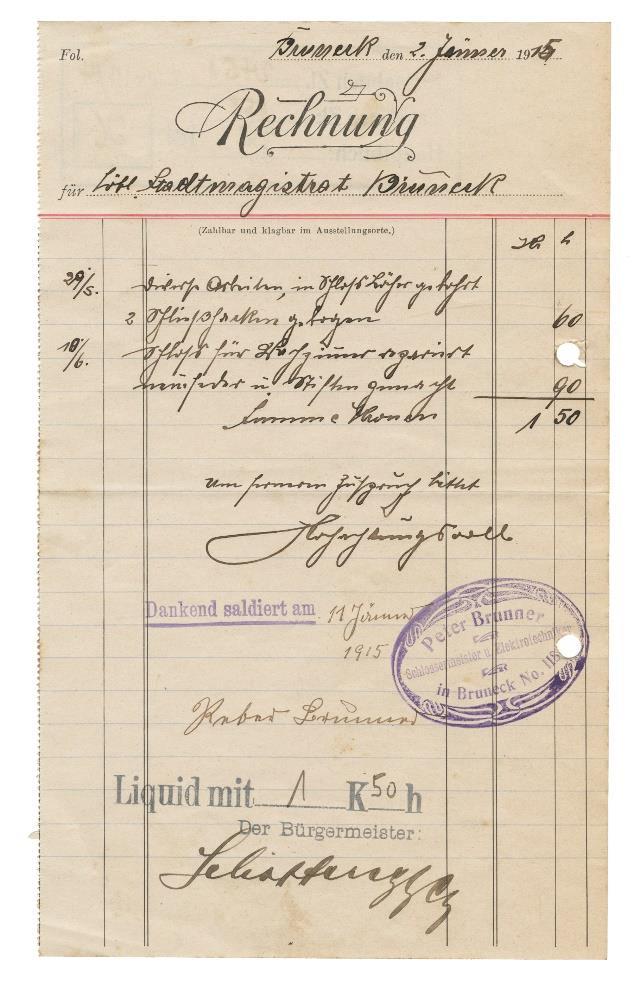 Fol. Bruneck den 2. Jänner 1915
Rechnung
für Löbl. Stadtmagistrat Bruneck
(Zahlbar und klagbar im Ausstellungsorte.)
K h
29/5. Diverse Arbeiten, in Schloß Löcher gebohrt
2 Schließhacken gebogen 60
10/6. Schloß für Wachzimmer repariert
neue Feder u. Stiften gemacht 90
Summe Kronen 1 50
Um ferneren Zuspruch bittet
Hochachtungsvoll
Dankend saldiert am 11 Jänner
1915
Peter Brunner
Schlossermeister u. Elektrotechniker
in Bruneck No. 118
Peter Brunner
Liquid mit 1 K 50 h
Der Bürgermeister: